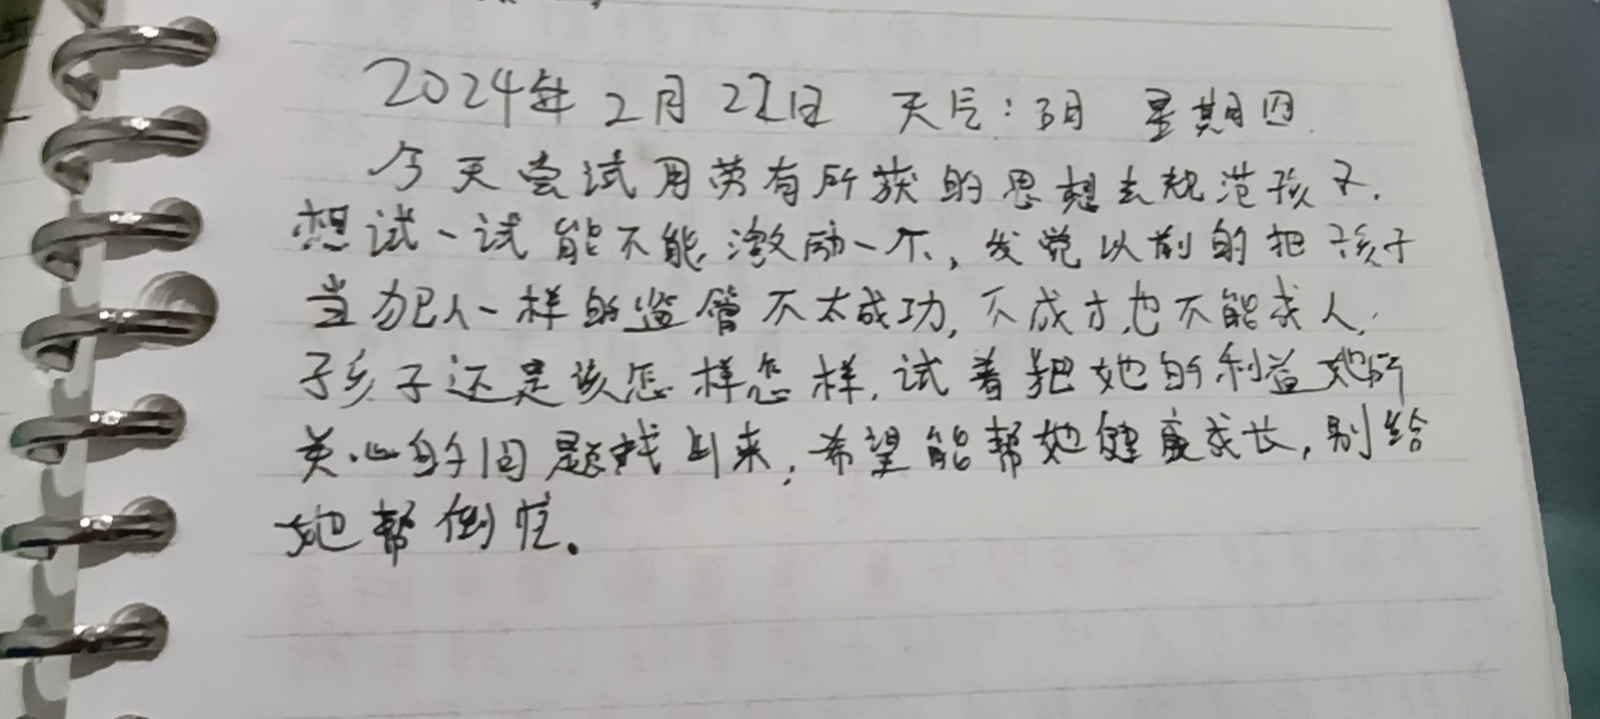 2024年2月22日 天气:阴 星期四
今天尝试用劳有所获的思想去规范孩子.
想试一试能不能激励一下,发觉以前的把孩子
当犯人一样的监管不太成功,不成才也不能成人,
孩子还是该怎样怎样,试着把她的利益她所
关心的问题找出来,希望能帮她健康成长,别给
她帮倒忙。